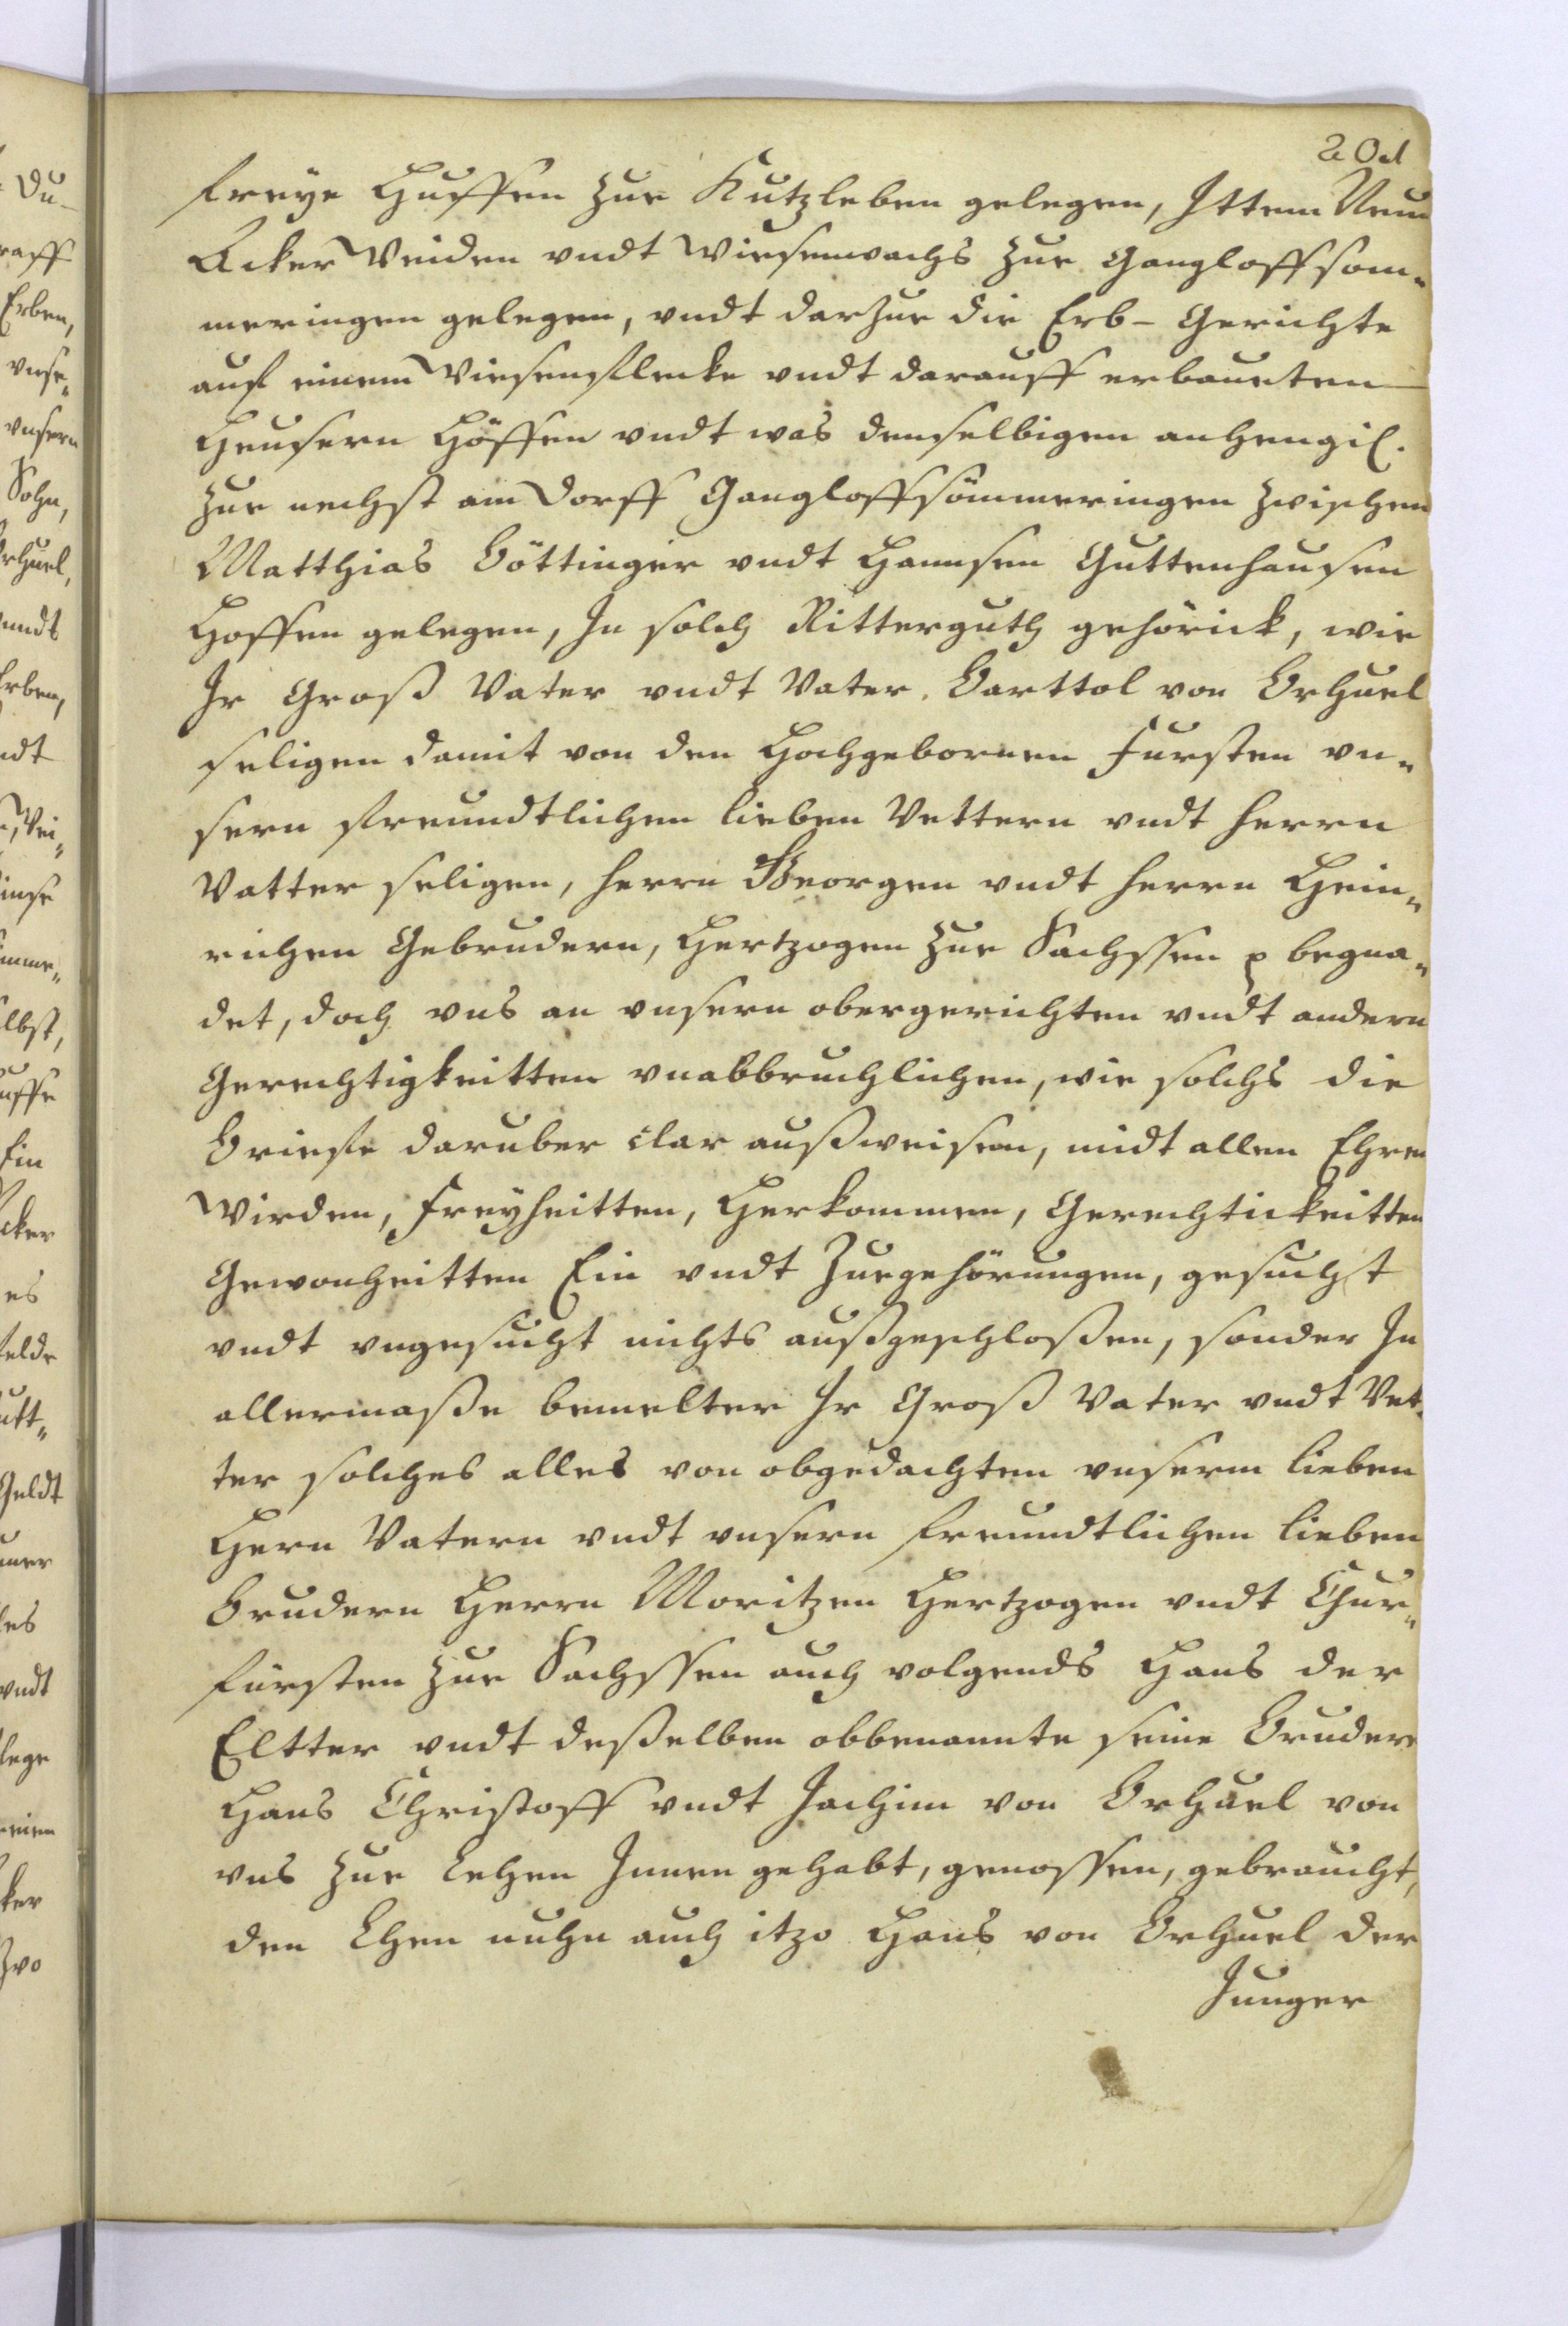 freye Huffen zur Kutzleben gelegen, Ittem Neun
Acker Weiden vndt Wiesenwachs zur Gangloffsom-
meringen gelegen, vndt darzur die Erb- Gerichte
auf einem Wiesenflecke vndt darauff erbaueten
Heusern Höffen vndt was denselbigen anhengi͠g.
zur nechst am Dorff Gangloffsömmeringen zwischen
Matthias Böttinger vndt Hannsen Guttenhausen
Hoffen gelegen, In solch Ritterguth gehörick, wie
Ir Groß Vater vndt Vater. Barttol von Bchuel
seligen damit von den Hochgebornen Fursten vn-
sern freundtlichen lieben Vettern vndt Herrn
Vatter seligen, Herrn Georgen vndt Herrn Hein-
richen Gebrudern, Hertzogen zur Sachssen p begna-
det, doch vns an vnsern obergerichten vndt andern
Gerechtigkeitten vnabbruchlichen, wie solchs die
Briefe daruber clar außweisen, midt allen Ehren
Wirden, Freyheitten, Herkommen, Gerechtickeitten
Gewonheitten Ein vndt Zurgehörungen, gesucht
vndt vngesucht nichts außgeschloßen, sonder In
allermaße bemelter Ir Groß Vater vndt Vet-
ter solches alles von obgedachten vnserm lieben
Hern Vatern vndt vnsern freundtlichen lieben
Brudern Herrn Moritzen Hertzogen vndt Chur-
fürsten zur Sachssen auch volgends Hans der
Eltter vndt deßelben obbenannte seine Bruder
Hans Christoff vndt Jachim von Bchuel von
vns zur Lehen Innen gehabt, genossen, gebraucht,
den Lhen nuhn auch itzo Hans von Bchuel der
Junger